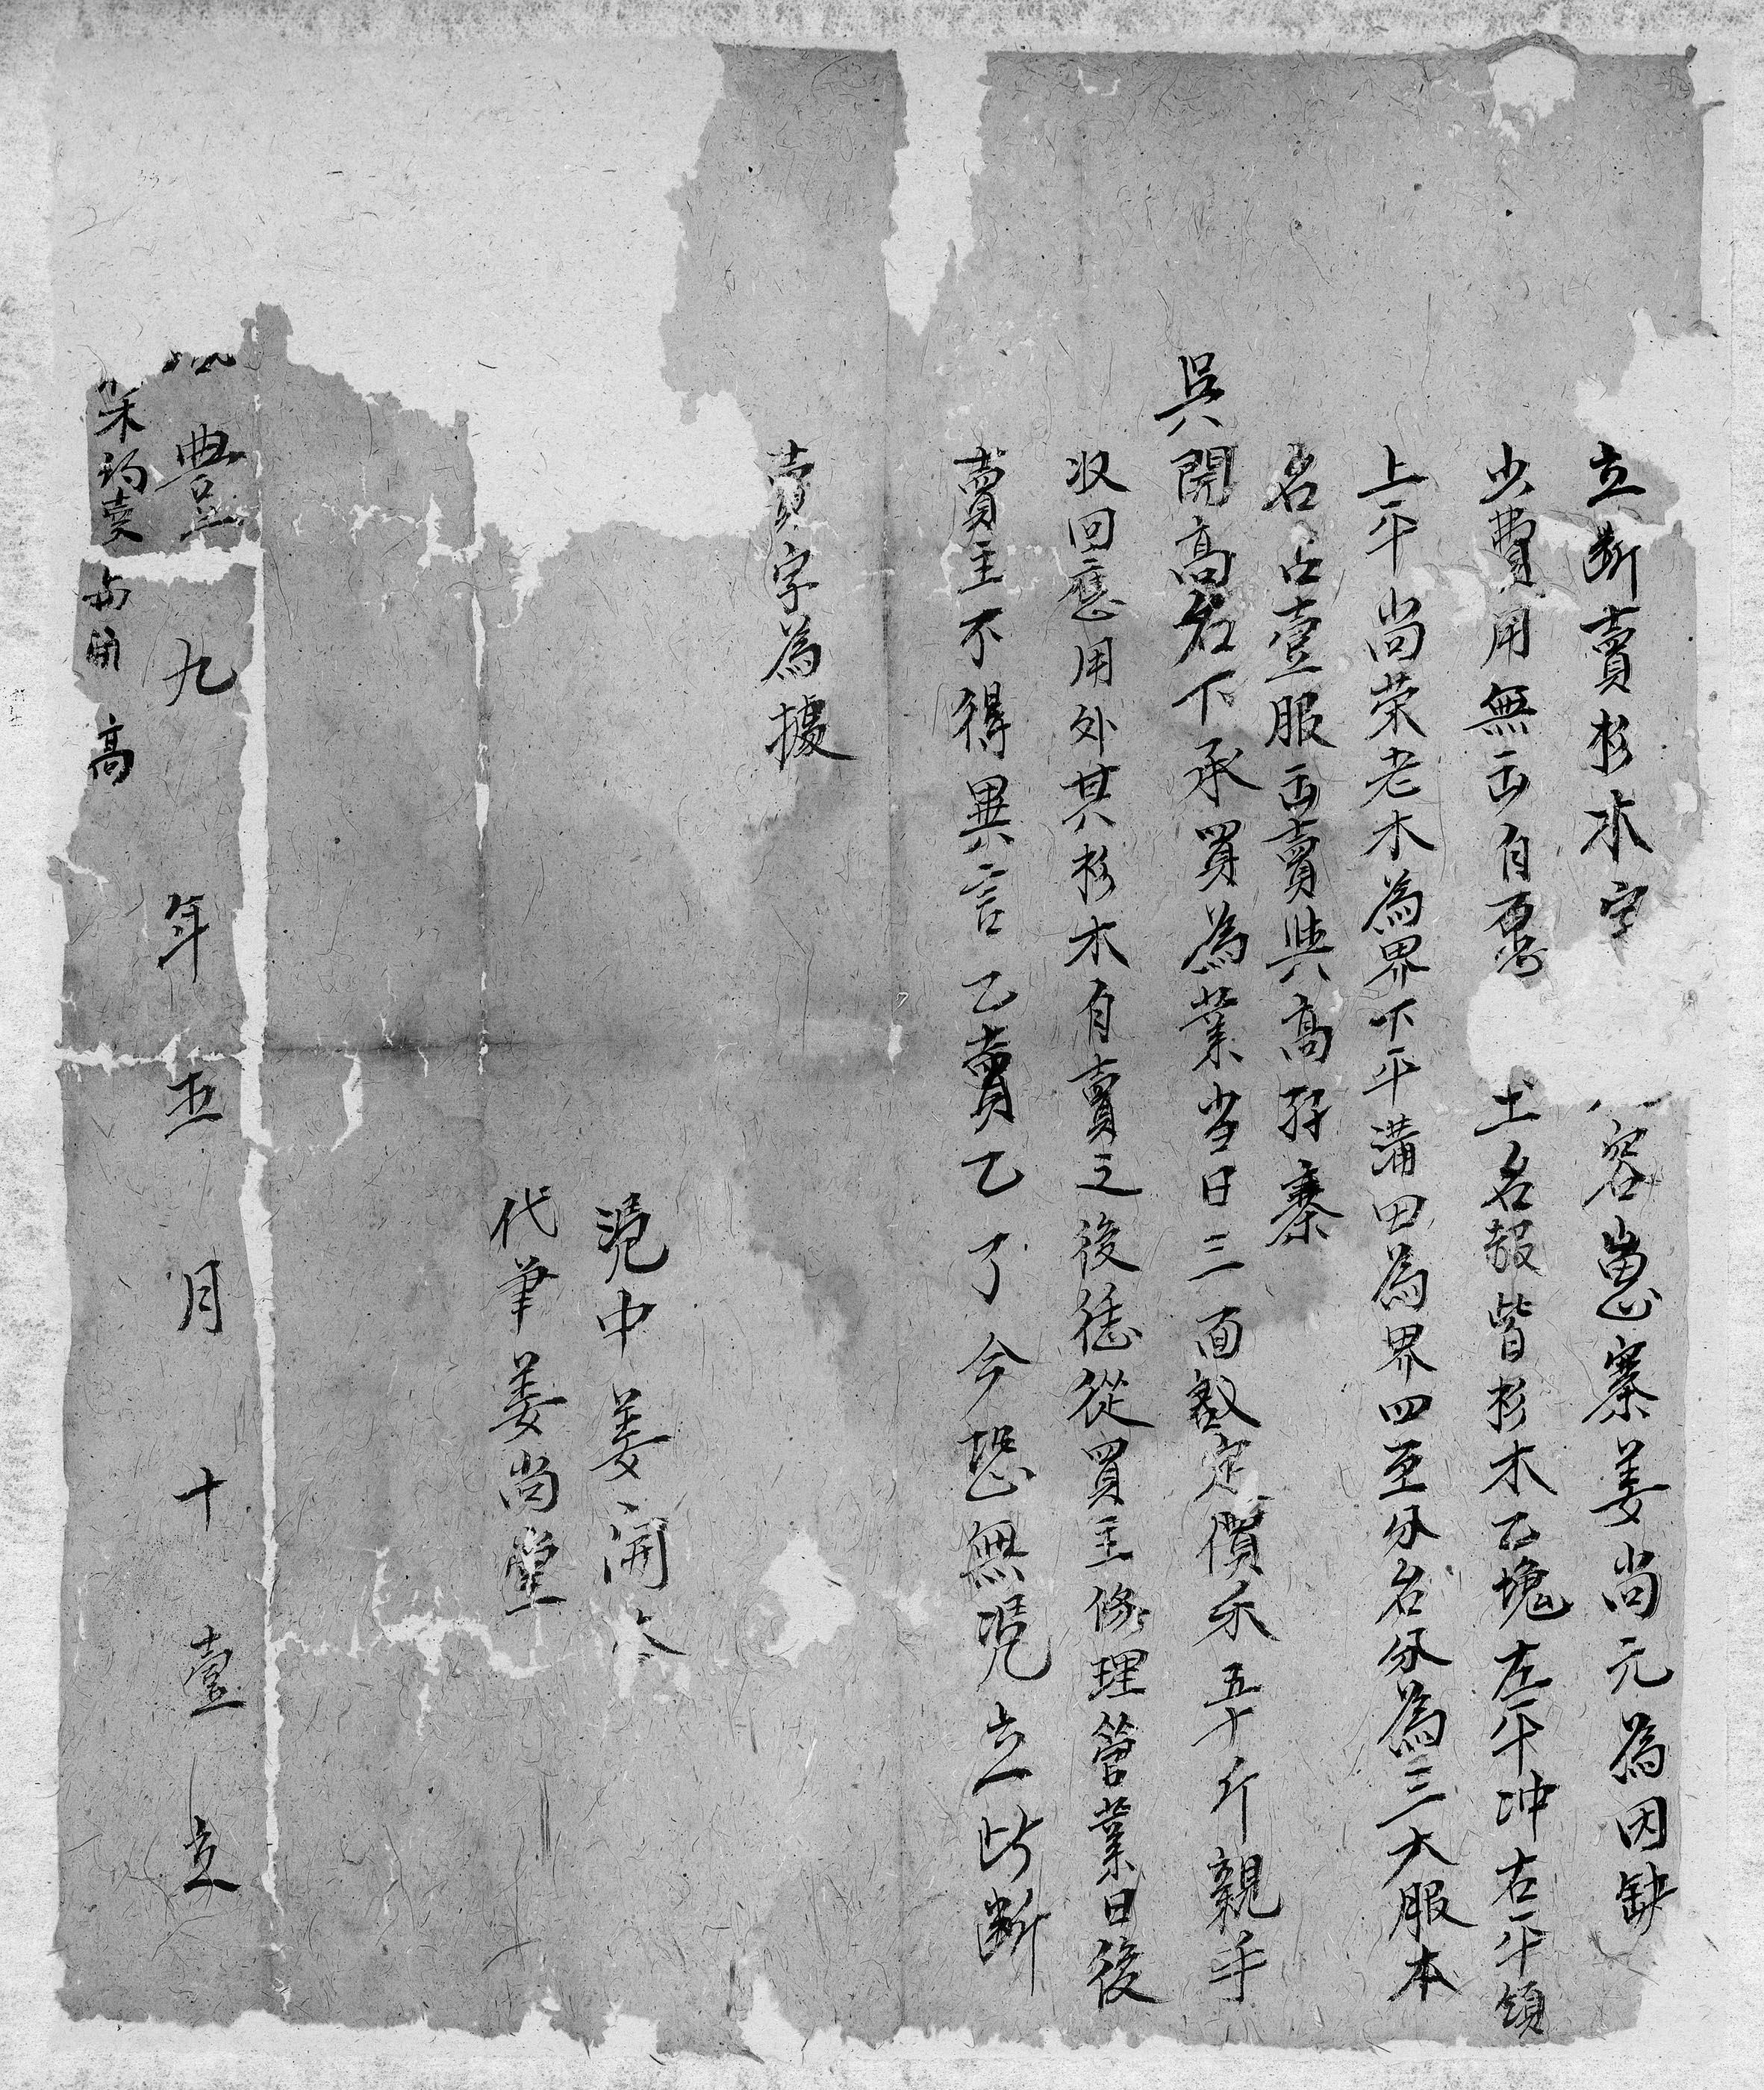 立斷賣杉木字 容嵩寨姜尚元為因缺
少費用無出自愿 土名報皆杉木乙塊左平冲右平領
上平尚荣老木為界下平溝田為界四至分名分為三大服本
名占壹服出賣與高孖寨
吳開高名下承買為業当日三面議定價禾五十斤親手
收回應用外其杉木自賣之後恁從買主修理管業日後
賣主不得異言乙賣乙了今恐無凴立此斷
賣字為據
凴中姜開
代筆姜尚堂
豐九年五月十壹立
木約賣與開高